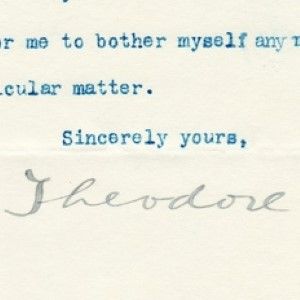 or me to bother myself any
icular matter.
Sincerely yours,
Theodore